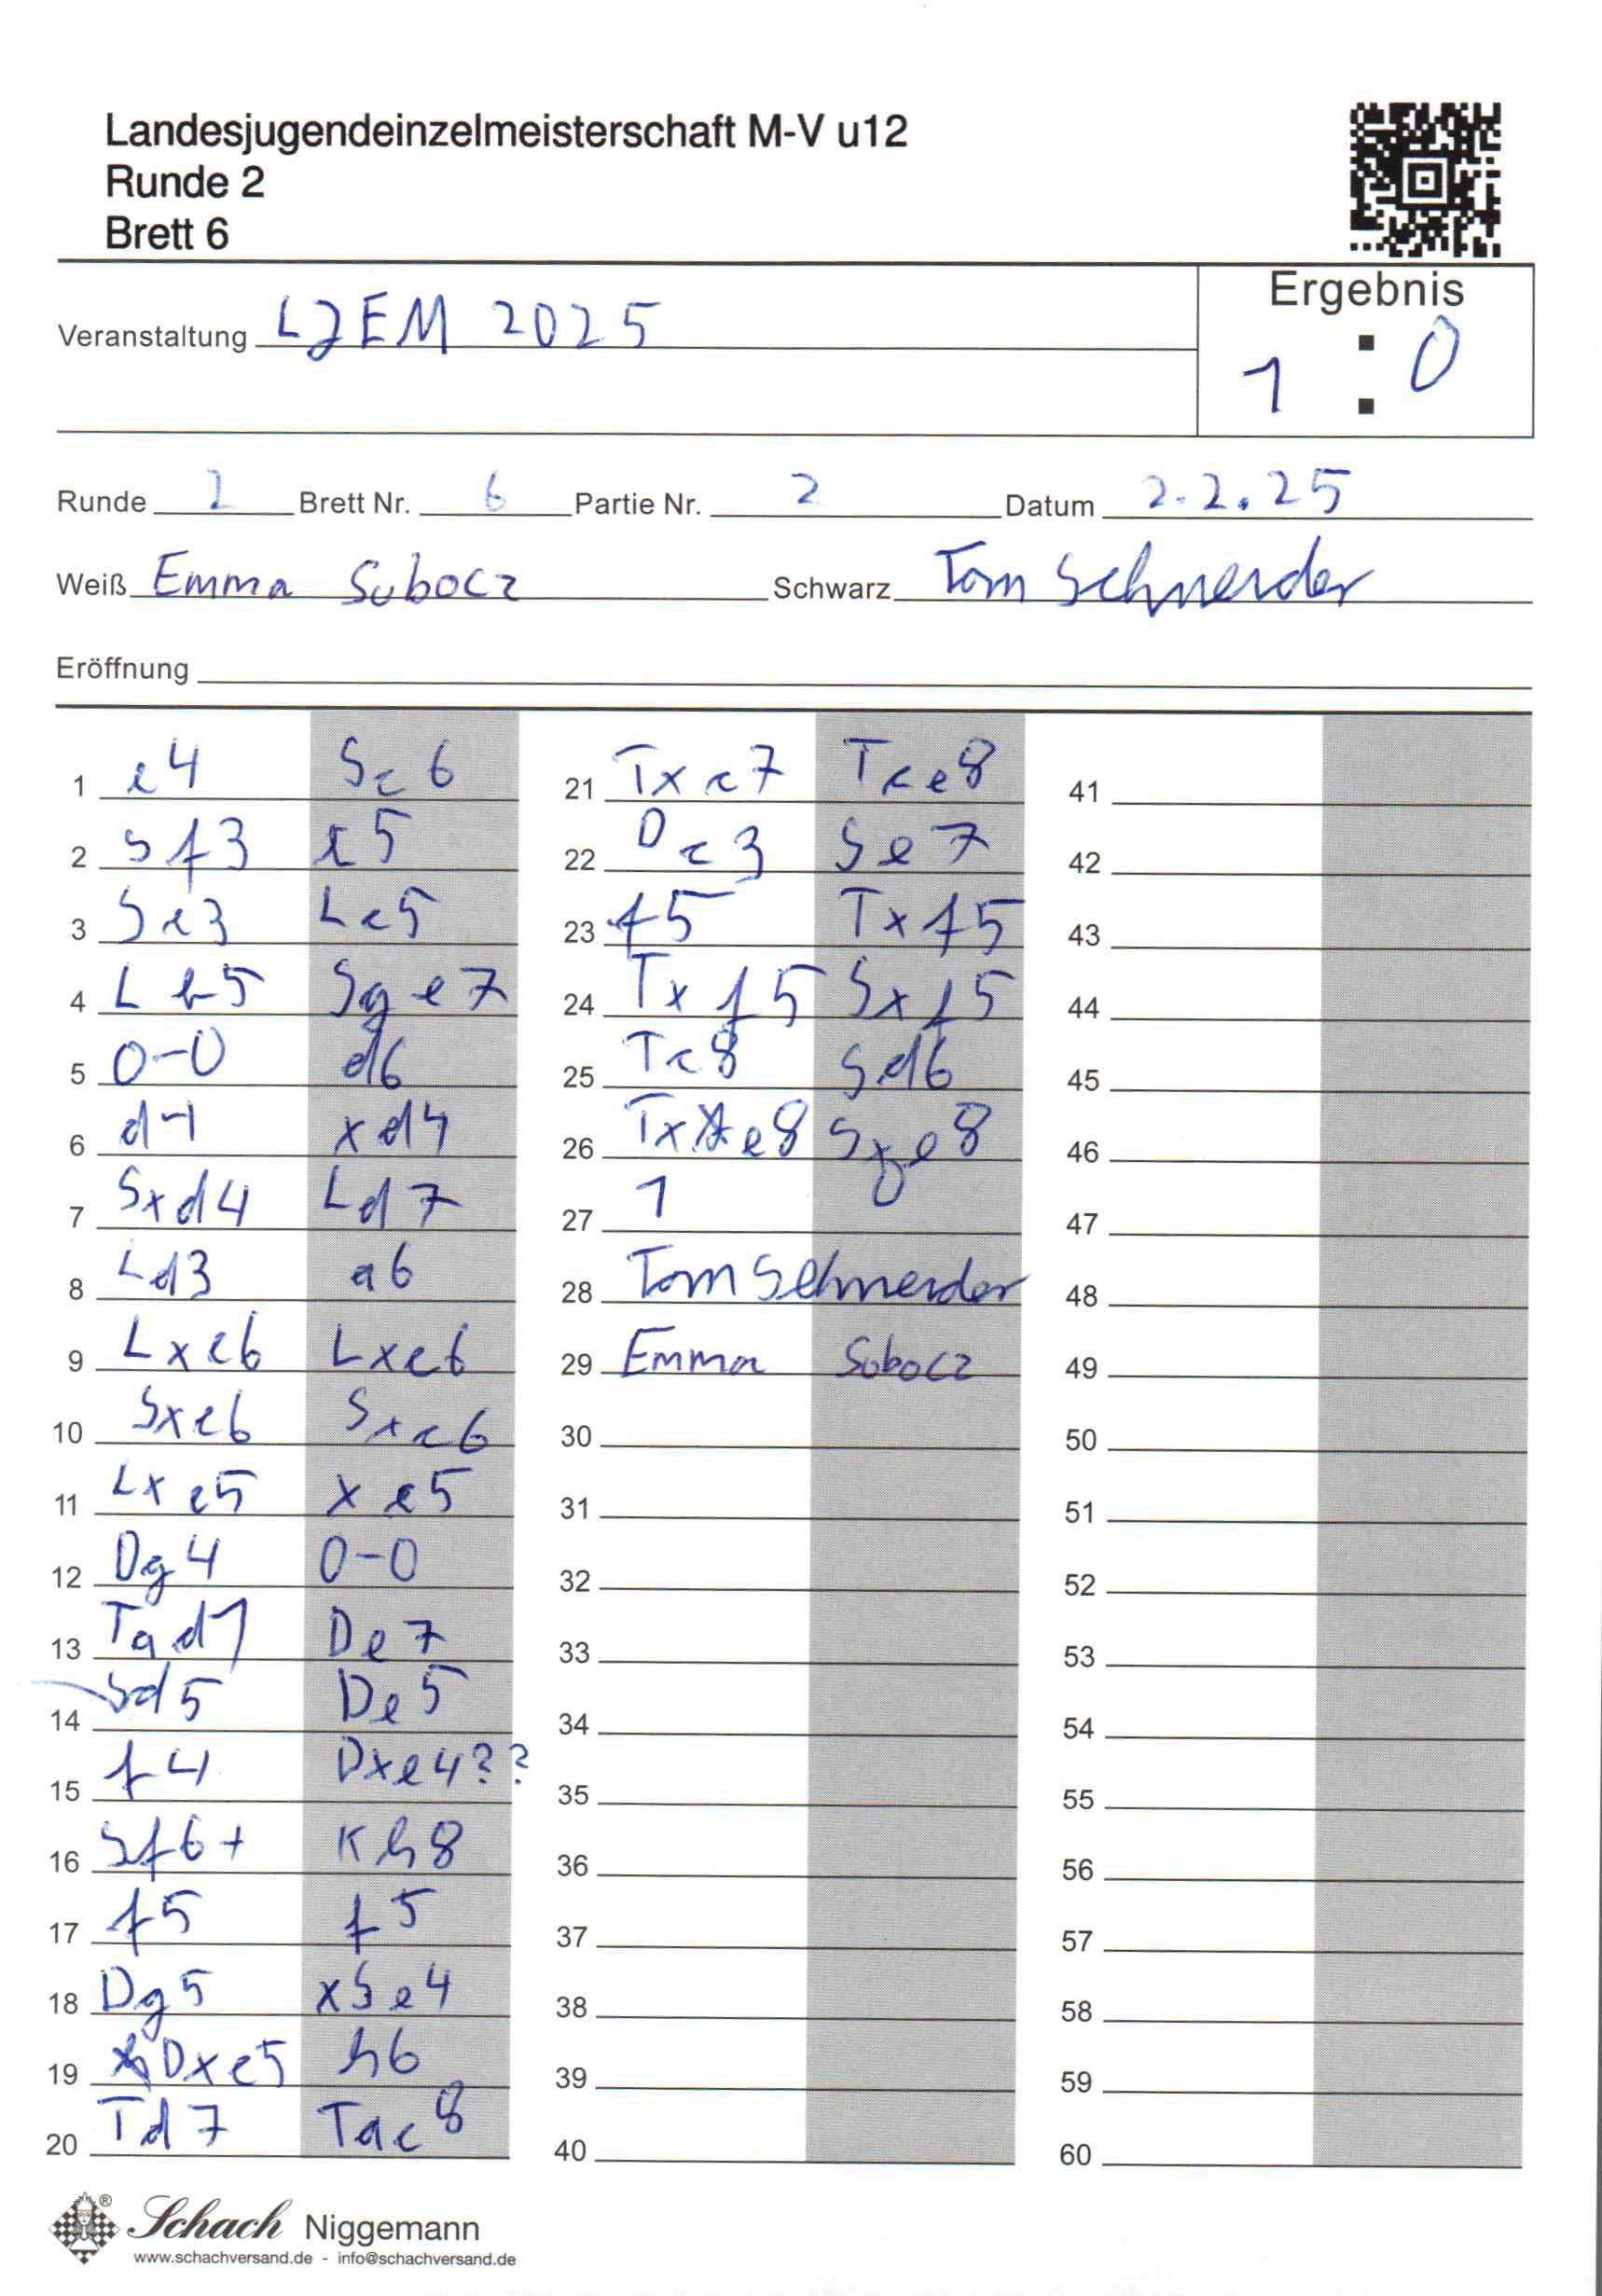 Landesjugendeinzelmeisterschaft M-V u12
Runde 2
Brett 6
Ergebnis
Veranstaltung LJEM 2025
1 : 0
Runde 2 Brett Nr. 6 Partie Nr. 2 Datum 2.2.25
Weiß Emma Sobocz Schwarz Tom Schneider
Eröffnung
1 e4 Sc6
2 Sf3 e5
3 Sc3 Lc5
4 Lb5 Sge7
5 0-0 d6
6 d4 xd4
7 Sxd4 Ld7
8 Le3 a6
9 Lxc6 Lxc6
10 Sxc6 Sxc6
11 Lxc5 xc5
12 Dg4 0-0
13 Tad1 De7
14 Sd5 De5
15 f4 Dxe4??
16 Sf6+ Kh8
17 f5 f5
18 Dg5 xSe4
19 Dxc5 h6
20 Td7 Tac8
21 Txc7 Tce8
22 Dc3 Se7
23 f5 Txf5
24 Txf5 Sxf5
25 Tc8 Sd6
26 Txe8 Sxe8
27 1
28 Tom Schneider
29 Emma Sobocz
30
31
32
33
34
35
36
37
38
39
40
41
42
43
44
45
46
47
48
49
50
51
52
53
54
55
56
57
58
59
60
Schach Niggemann
www.schachversand.de - info@schachversand.de